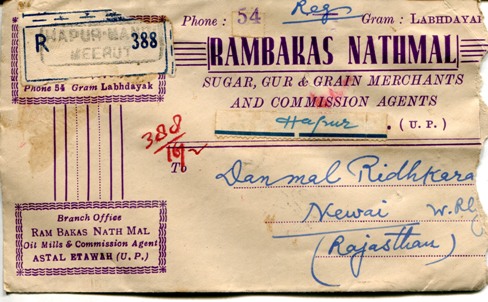 Phone : 54 Reg Gram : LABHDAYAK
R HAPUR-MA
MEERUT 388
Phone 54 Gram Labhdayak
RAMBAKAS NATHMAL
SUGAR, GUR & GRAIN MERCHANTS
AND COMMISSION AGENTS
Hapur . (U. P.)
388
To
Danmal Ridhkara
Newai W. Rly
(Rajasthan)
Branch Office
RAM BAKAS NATH MAL
Oil Mills & Commission Agent
ASTAL ETAWAH (U. P.)